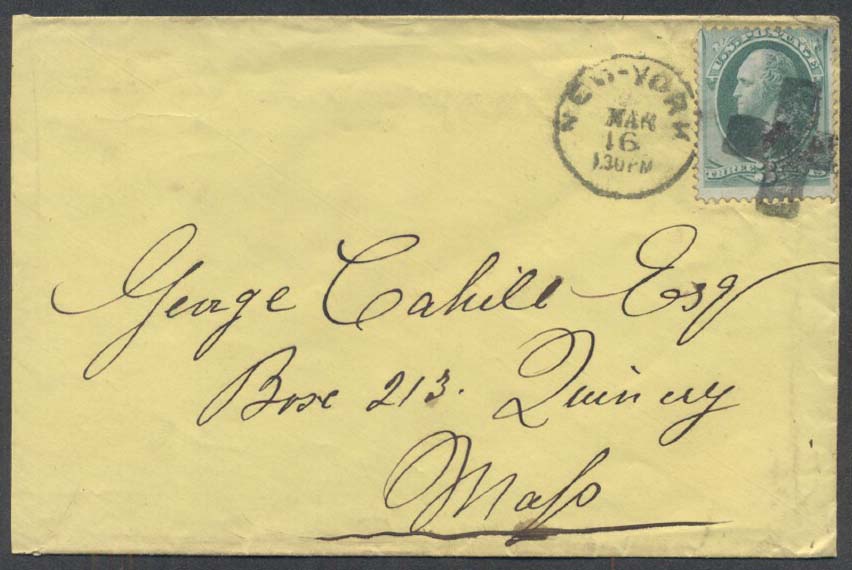 NEW-YORK
MAR
16
1.30PM
U.S. POSTAGE
THREE
George Cahill Esq
Box 213. Quincy
Mass